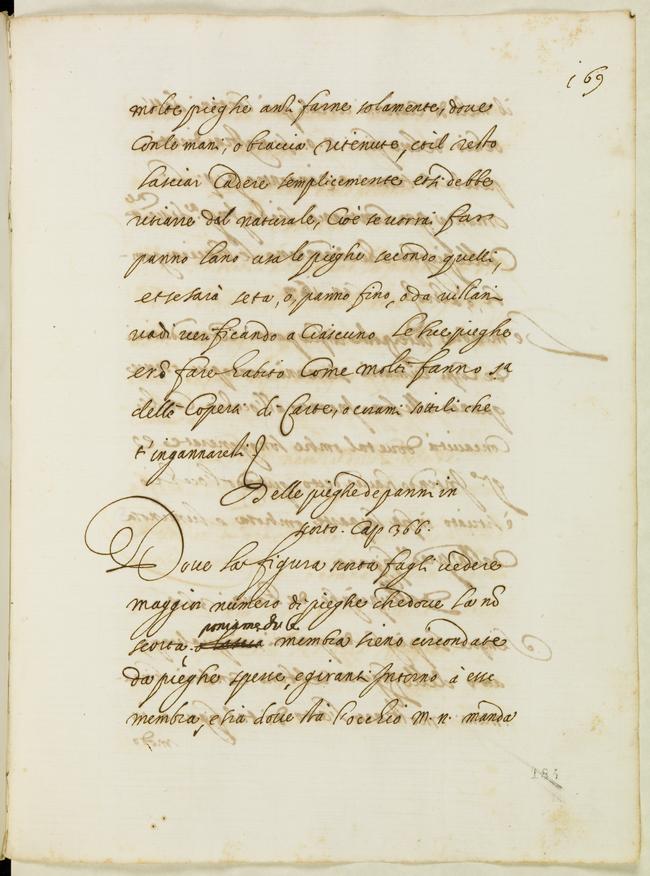 169
molte pieghe anzi farne solamente, doue
con le mani, o braccia ritenute, et il resto
lasciar cadere semplicemente et si debbe
ritrarre dal naturale, Cioè se uorrai far
panno lano usa le pieghe secondo quelli,
et se sarà seta, o panno fino, o da uillani
uadi uerificando a Ciascuno le sue pieghe
e nõ fare habito Come molti fanno sa
delle Coperti di Carte, o curami sottili che
t'ingannaresti
Delle pieghe de panni in
scorto. Cap 366.
Doue la figura scorta fagli uedere
maggior numero di pieghe che doue la nõ
poniamo che le
scorta, membra sieno circondate
da pieghe spesse, e giranti Intorno à esse
membra, e sia doue stà l'occhio m. n. manda
185